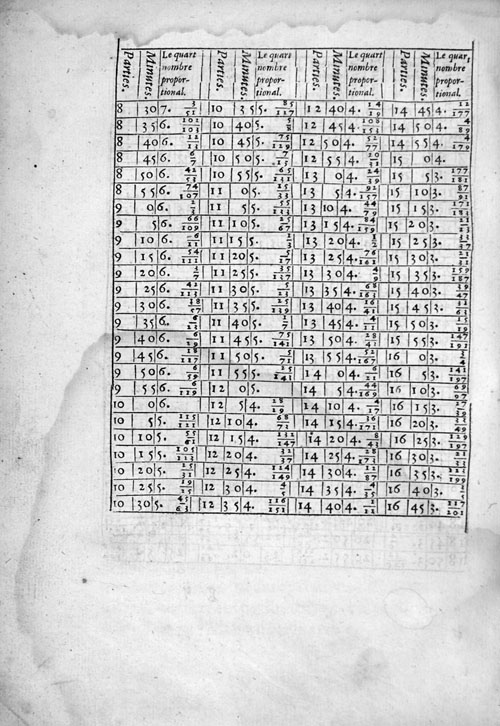 Parties. | Minutes. | Le quart | Parties. | Minutes. | Le quart | Parties. | Minutes. | Le quart | Parties. | Minutes. | Le quar,
nombre | nombre | nombre | nombre
propor- | propor- | propor- | propor-
tional. | tional. | tional. | tional.
8 | 30 | 7. 3/51 | 10 | 35 | 5. 85/127 | 12 | 40 | 4. 14/19 | 14 | 45 | 4. 12/177
8 | 35 | 6. 102/103 | 10 | 40 | 5. 5/8 | 12 | 45 | 4. 108/153 | 14 | 50 | 4. 4/89
8 | 40 | 6. 12/13 | 10 | 45 | 5. 75/129 | 12 | 50 | 4. 52/77 | 14 | 55 | 4. 4/179
8 | 45 | 6. 6/7 | 10 | 50 | 5. 7/13 | 12 | 55 | 4. 20/31 | 15 | 0 | 4.
8 | 50 | 6. 42/53 | 10 | 55 | 5. 65/131 | 13 | 0 | 4. 24/39 | 15 | 5 | 3. 177/181
8 | 55 | 6. 74/107 | 11 | 0 | 5. 15/33 | 13 | 5 | 4. 92/157 | 15 | 10 | 3. 87/91
9 | 0 | 6. 2/3 | 11 | 5 | 5. 55/133 | 13 | 10 | 4. 44/79 | 15 | 15 | 3. 171/183
9 | 5 | 6. 66/109 | 11 | 10 | 5. 25/67 | 13 | 15 | 4. 84/159 | 15 | 20 | 3. 21/23
9 | 10 | 6. 6/11 | 11 | 15 | 5. 1/3 | 13 | 20 | 4. 1/2 | 15 | 25 | 3. 33/37
9 | 15 | 6. 54/111 | 11 | 20 | 5. 5/17 | 13 | 25 | 4. 76/161 | 15 | 30 | 3. 27/31
9 | 20 | 6. 3/7 | 11 | 25 | 5. 35/137 | 13 | 30 | 4. 4/9 | 15 | 35 | 3. 159/187
9 | 25 | 6. 42/113 | 11 | 30 | 5. 5/23 | 13 | 35 | 4. 68/163 | 15 | 40 | 3. 39/47
9 | 30 | 6. 18/57 | 11 | 35 | 5. 25/139 | 13 | 40 | 4. 16/41 | 15 | 45 | 3. 51/63
9 | 35 | 6. 6/23 | 11 | 40 | 5. 1/7 | 13 | 45 | 4. 4/11 | 15 | 50 | 3. 15/19
9 | 40 | 6. 6/29 | 11 | 45 | 5. 75/141 | 13 | 50 | 4. | 15 | 55 | 3. 147/191
9 | 45 | 6. 18/117 | 11 | 50 | 5. 5/71 | 13 | 55 | 4. 52/167 | 16 | 0 | 3. 3/4
9 | 50 | 6. 6/59 | 11 | 55 | 5. | 14 | 0 | 4. 6/21 | 16 | 5 | 3. 141/193
9 | 55 | 6. 6/119 | 12 | 0 | 5. | 14 | 5 | 4. 44/169 | 16 | 10 | 3. 69/97
10 | 0 | 6. | 12 | 5 | 4. 28/29 | 14 | 10 | 4. 4/17 | 16 | 15 | 3. 27/39
10 | 5 | 5. 115/121 | 12 | 10 | 4. 68/73 | 14 | 15 | 4. 36/171 | 16 | 20 | 3. 33/49
10 | 10 | 5. 55/61 | 12 | 15 | 4. 132/147 | 14 | 20 | 4. 8/43 | 16 | 25 | 3. 129/197
10 | 15 | 5. 105/123 | 12 | 20 | 4. 32/37 | 14 | 25 | 4. 28/173 | 16 | 30 | 3. 21/33
10 | 20 | 5. 25/31 | 12 | 25 | 4. 124/149 | 14 | 30 | 4. 12/87 | 16 | 35 | 3. 123/199
10 | 25 | 5. 19/25 | 12 | 30 | 4. 4/5 | 14 | 35 | 4. 4/35 | 16 | 40 | 3. 3/5
10 | 30 | 5. 45/63 | 12 | 35 | 4. 116/151 | 14 | 40 | 4. 2/22 | 16 | 45 | 3. 117/201